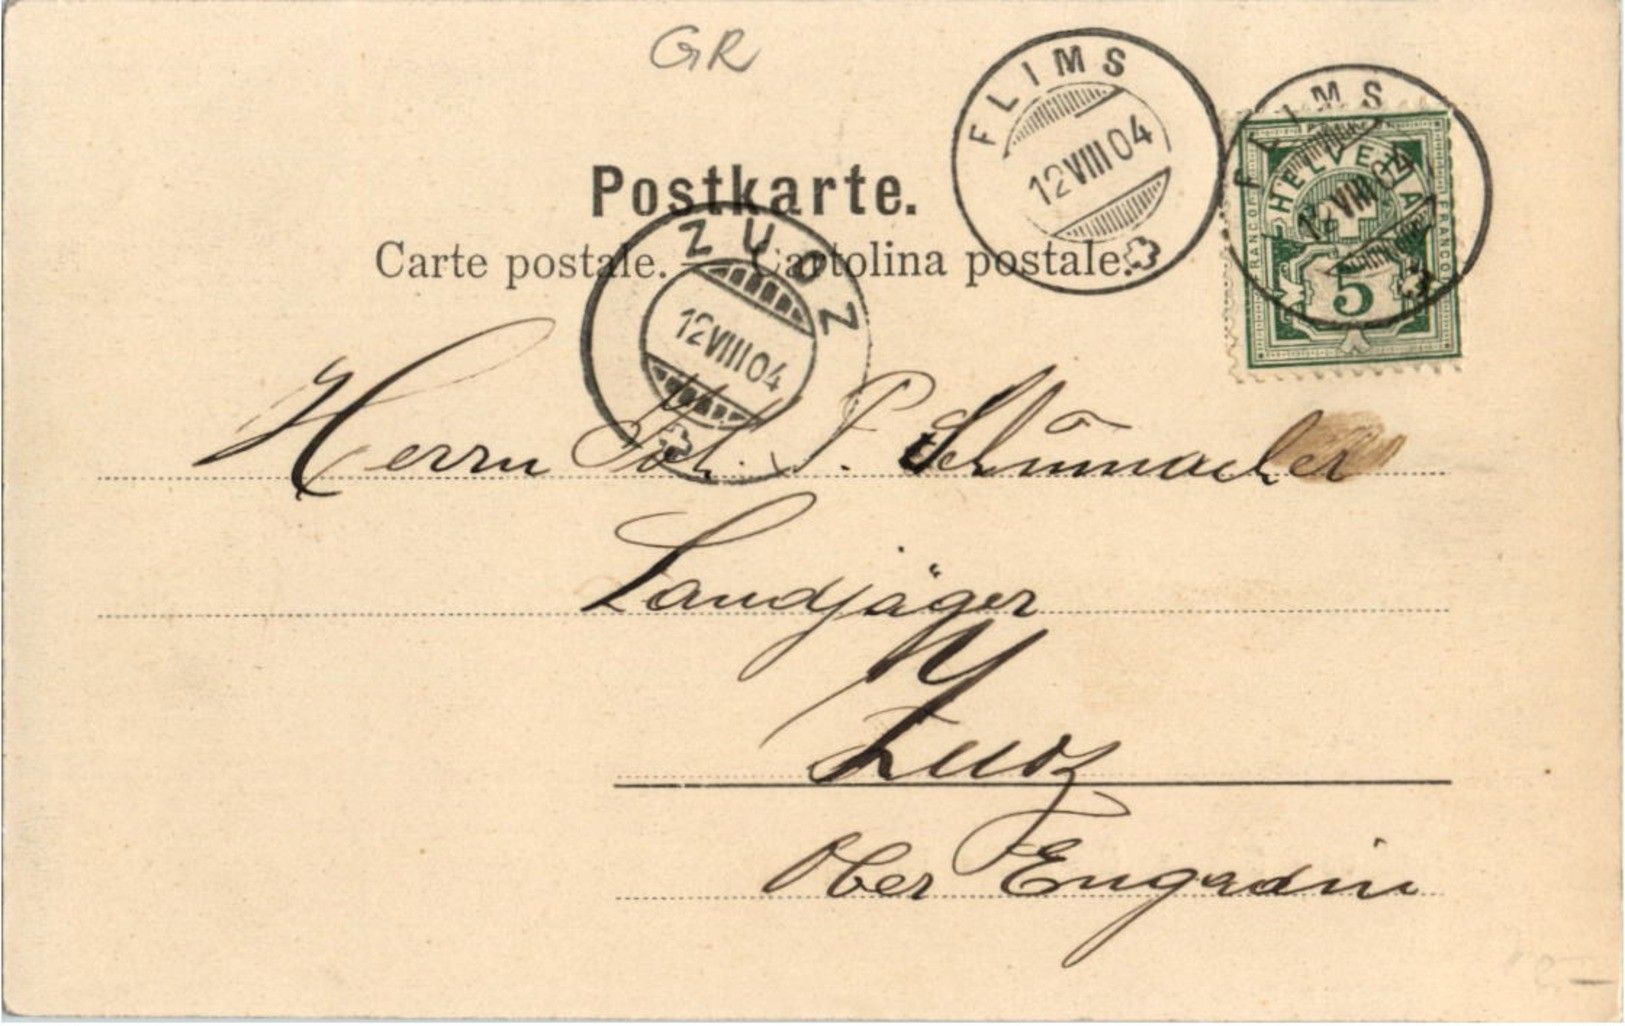 GR
FLIMS
12 VIII 04
FLIMS
12 VIII 04
HELVETIA
FRANCO
FRANCO
5
Postkarte.
Carte postale. Cartolina postale.
ZUOZ
12 VIII 04
Herrn Joh. P. Schūmacher
Landjäger
Zuoz
Ober Engadin